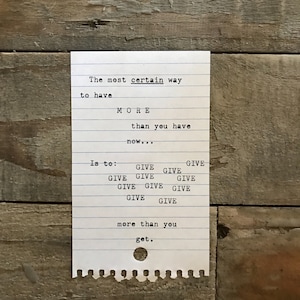 The most certain way
to have
M O R E
than you have
now...
Is to: GIVE GIVE
GIVE GIVE GIVE
GIVE GIVE GIVE
GIVE GIVE
more than you
get.